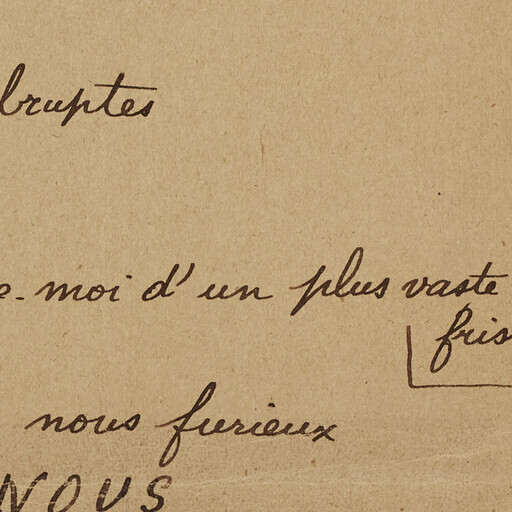 bruptes
e-moi d'un plus vaste
fris
nous furieux
NOUS